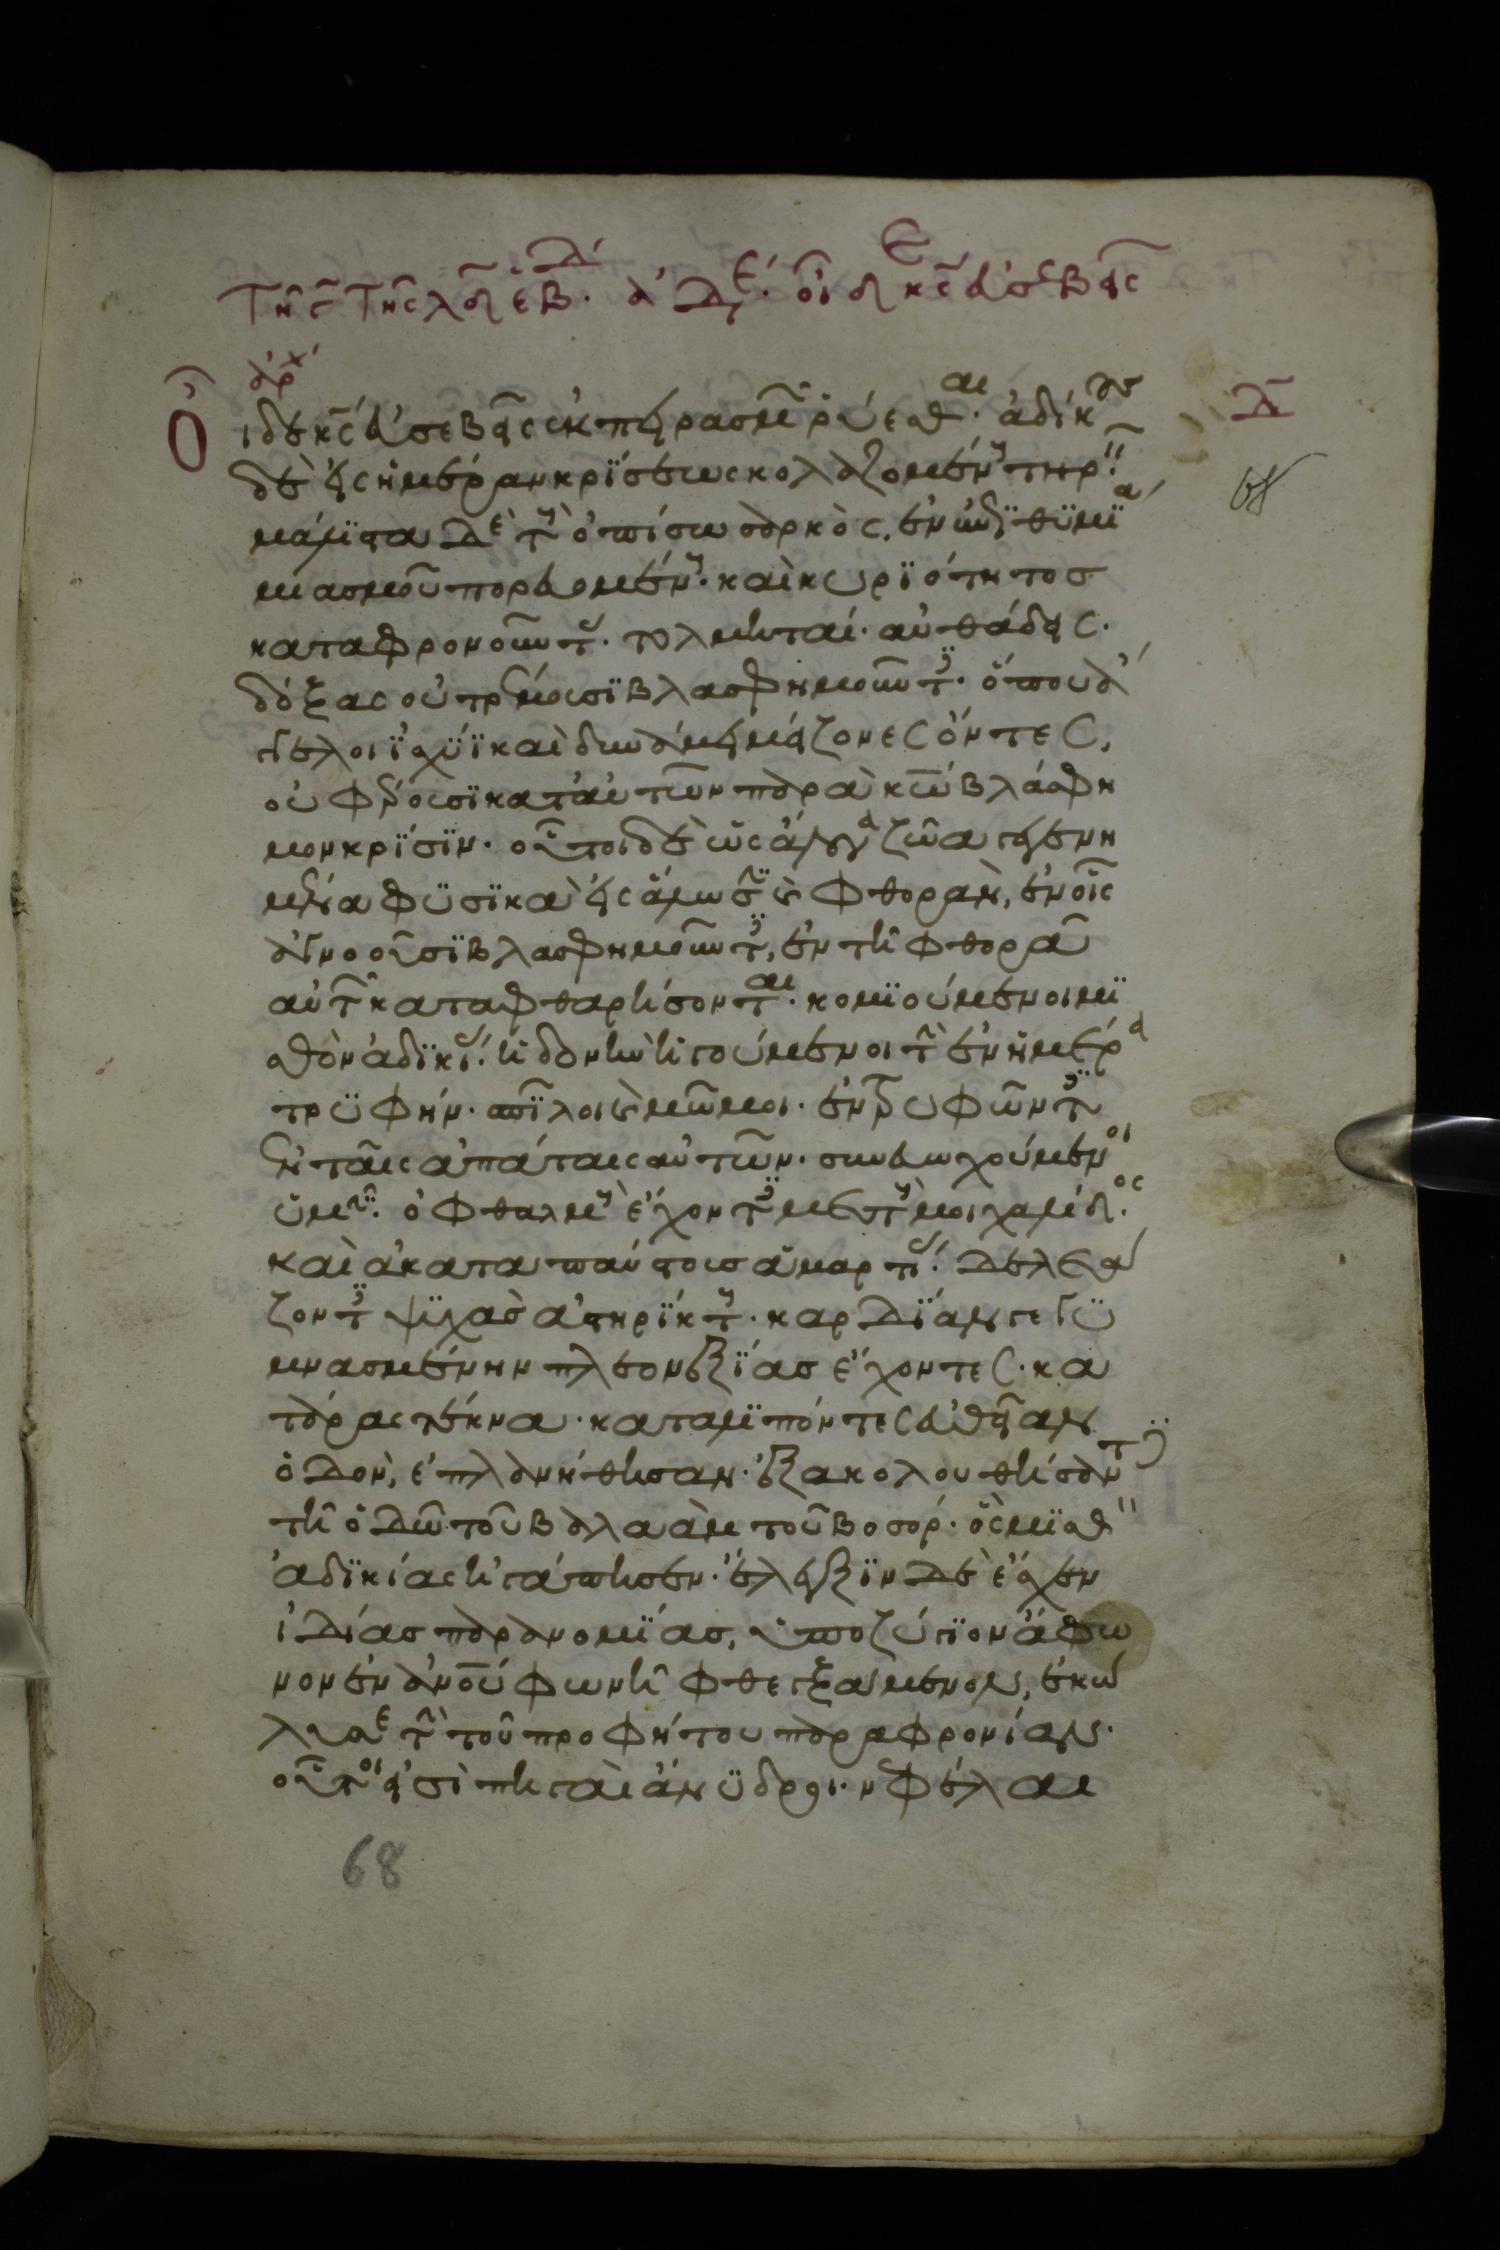 Τῆ ϛ τῆς λδ ἑβ. Δ΄ ἀδε΄. οἶδε κς εὐσεβεῖς
ἀρχ
Οἶδε κς εὐσεβεῖς ἐκ πειρασμοῦ ῥύεσθαι. ἀδίκους
δὲ εἰς ἡμέραν κρίσεως κολαζομένους τηρεῖν
μάλιστα δὲ τοὺς ὀπίσω σαρκὸς, ἐν ἐπιθυμία
μιασμοῦ πορευομένους. καὶ κυριότητος
καταφρονοῦντας. τολμηταί. αὐθάδεις.
δόξας οὐ τρέμουσι βλασφημοῦντες. ὅπου ἄγ
γελοι ἰσχύϊ καὶ δυνάμει μείζονες ὄντες,
οὐ φέρουσι κατ' αὐτῶν παρὰ κω βλάσφη
μον κρίσιν. οὗτοι δὲ ὡς ἄλογα ζῶα γεγενη
μένα φυσικὰ εἰς ἅλωσιν καὶ φθορὰν, ἐν οἷς
ἀγνοοῦσι βλασφημοῦντες, ἐν τῆ φθορᾶ
αὐτῶν καταφθαρήσονται. κομιούμενοι μι
σθὸν ἀδικίας. ἡδονὴν ἡγούμενοι τὴν ἐν ἡμέρα
τρυφήν. σπίλοι καὶ μῶμοι. ἐντρυφῶντες
ἐν ταῖς ἀπάταις αὐτῶν. συνευωχούμενοι
ὑμῖν. ὀφθαλμοὺς ἔχοντες μεστοὺς μοιχαλίδος.
καὶ ἀκαταπαύστους ἁμαρτίας. δελεά
ζοντες ψυχὰς ἀστηρίκτους. καρδίαν γεγυ
μνασμένην πλεονεξίας ἔχοντες. κα
τάρας τέκνα. καταλιπόντες εὐθεῖαν
ὁδὸν, ἐπλανήθησαν. ἐξακολουθήσαντες
τῆ ὁδῶ τοῦ βαλαὰμ τοῦ βοσόρ. ὃς μισθὸν
ἀδικίας ἠγάπησεν. ἔλεγξιν δὲ ἔσχεν
ἰδίας παρανομίας, ὑποζύγιον ἄφω
νον ἐν ἀνου φωνῆ φθεγξάμενον, ἐκώ
λυσε τὴν τοῦ προφήτου παραφρονίαν.
οὗτοι εἰσὶ πηγαὶ ἄνυδροι. νεφέλαι
68